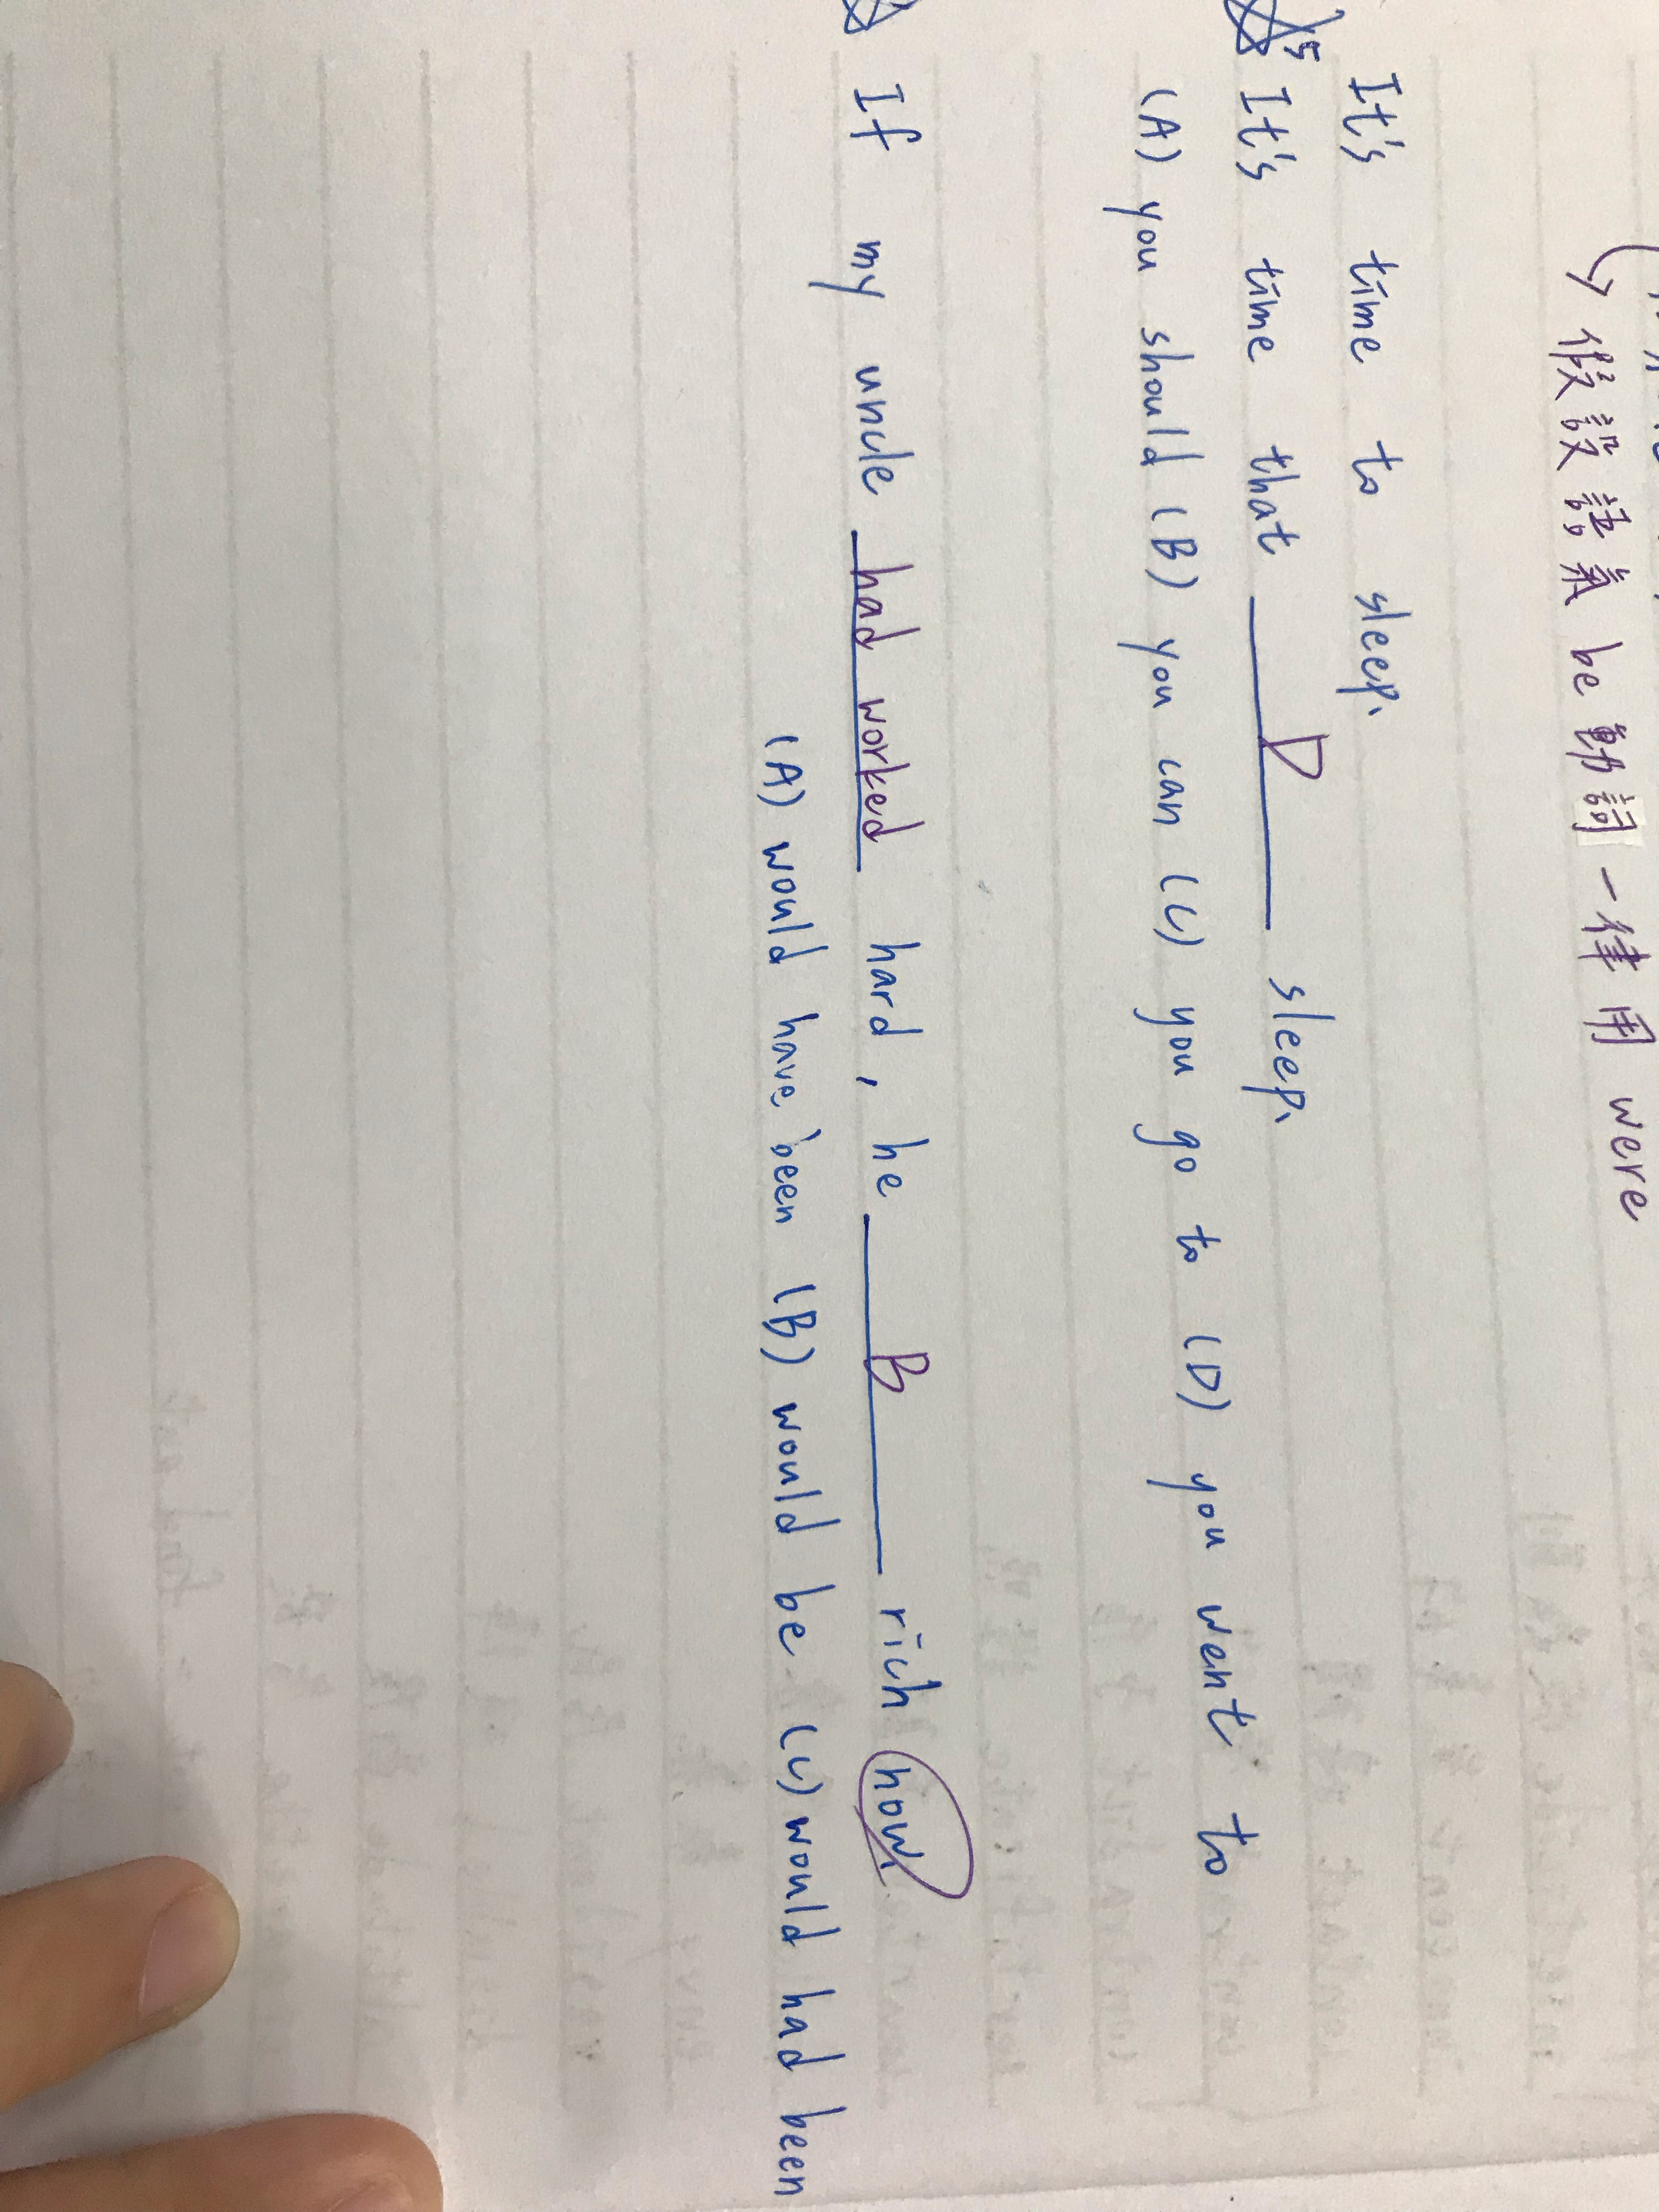 假設語氣 be 動詞 一律用 were
It's time to sleep.
5 It's time that D sleep.
(A) you should (B) you can (C) you go to (D) you went to
If my uncle had worked hard, he B rich now.
(A) would have been (B) would be (C) would had been